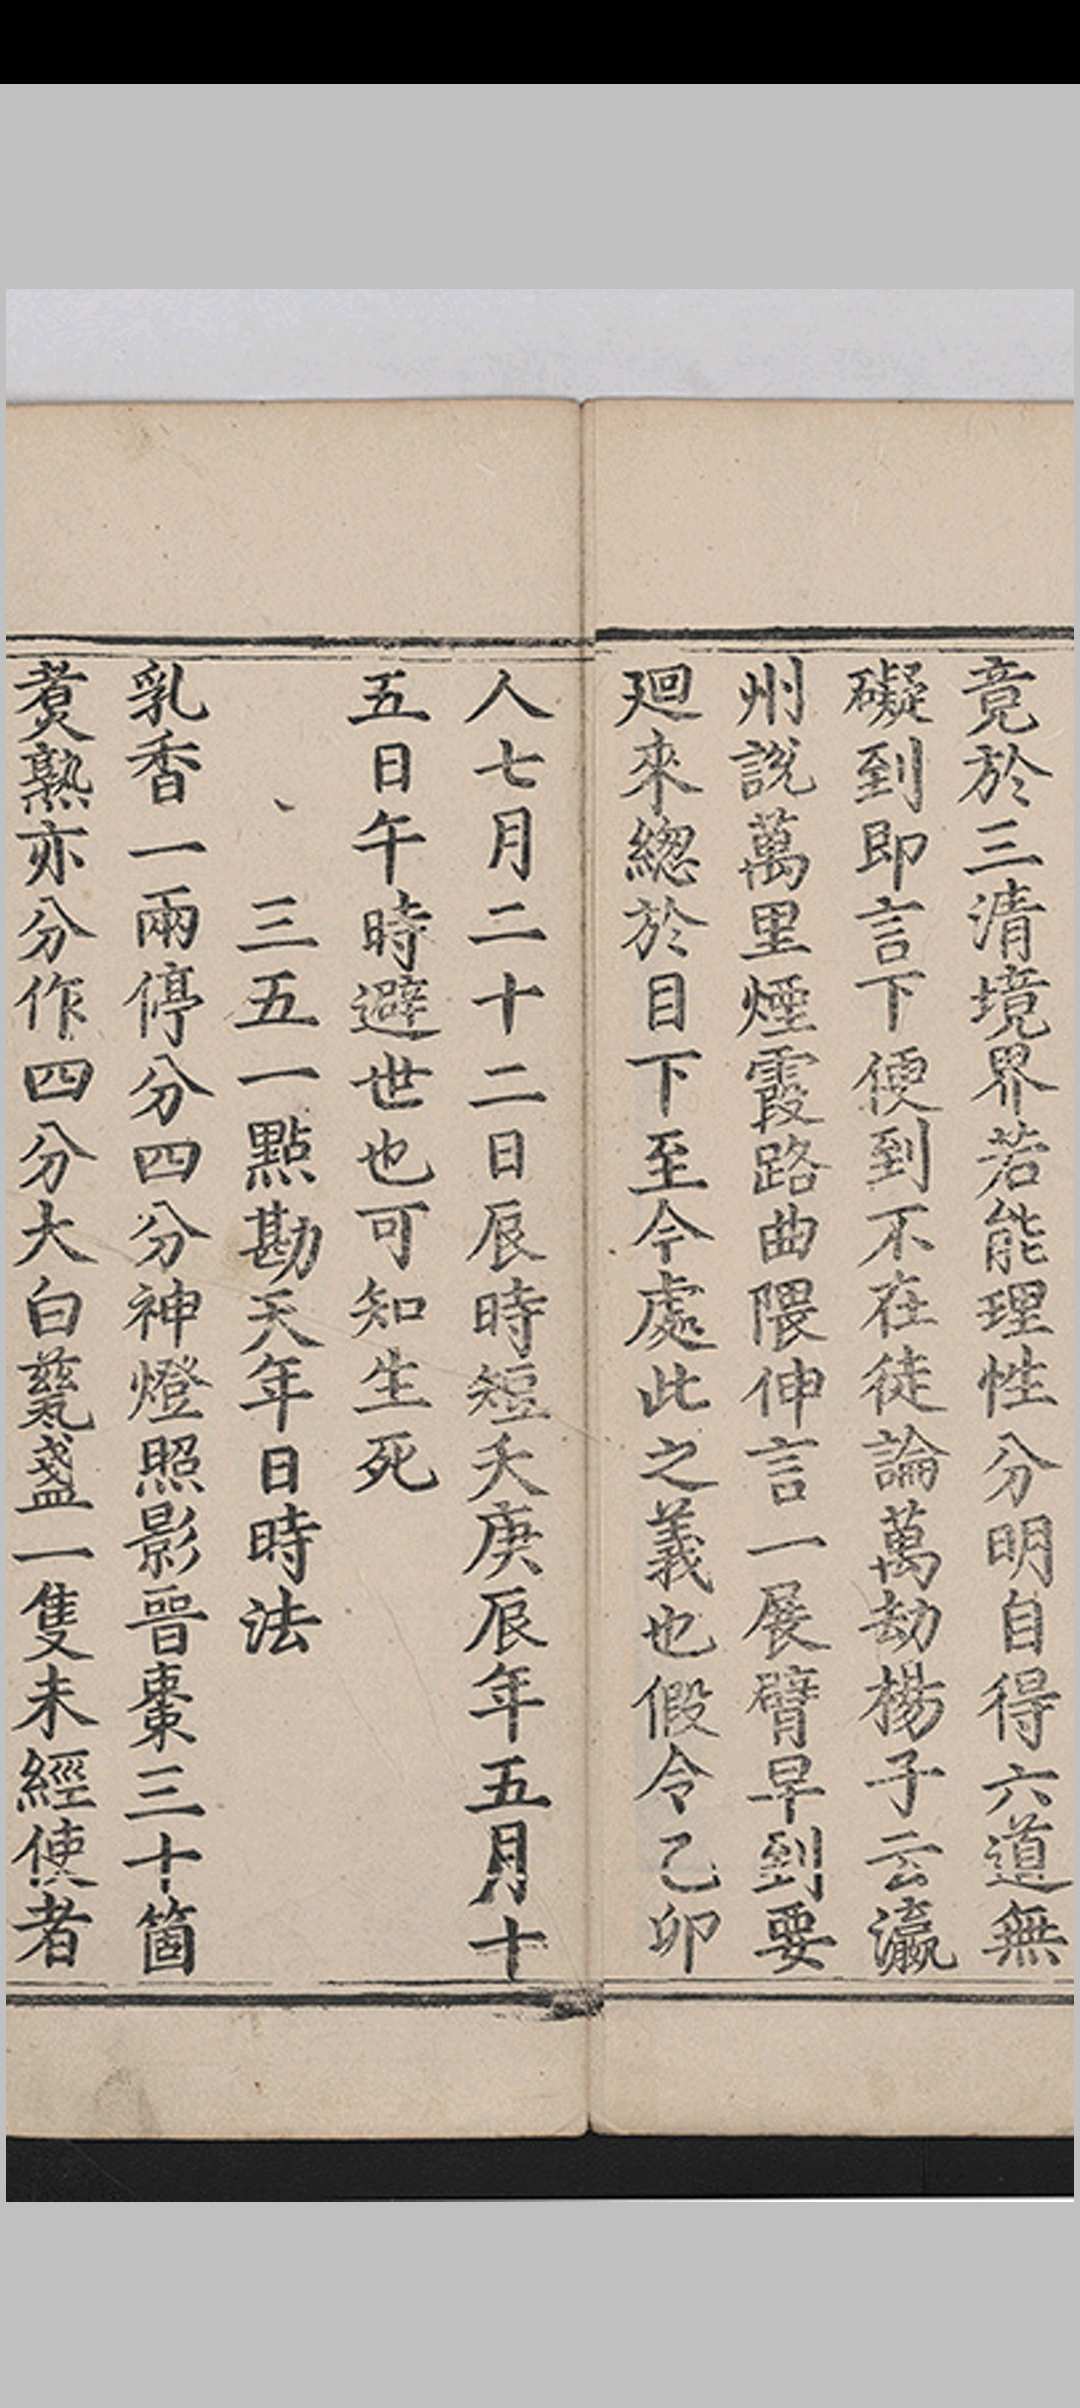 竟於三清境界若能理性分明自得六道無
礙到即言下便到不在徒論萬劫楊子云瀛
州說萬里煙霞路曲隈伸言一展臂早到要
廻來緫於目下至今處此之義也假令乙卯
人七月二十二日辰時短夭庚辰年五月十
五日午時避世也可知生死
三五一點勘天年日時法
乳香一兩停分四分神燈照影晉棗三十箇
煑熟亦分作四分大白甆盞一隻未經使者